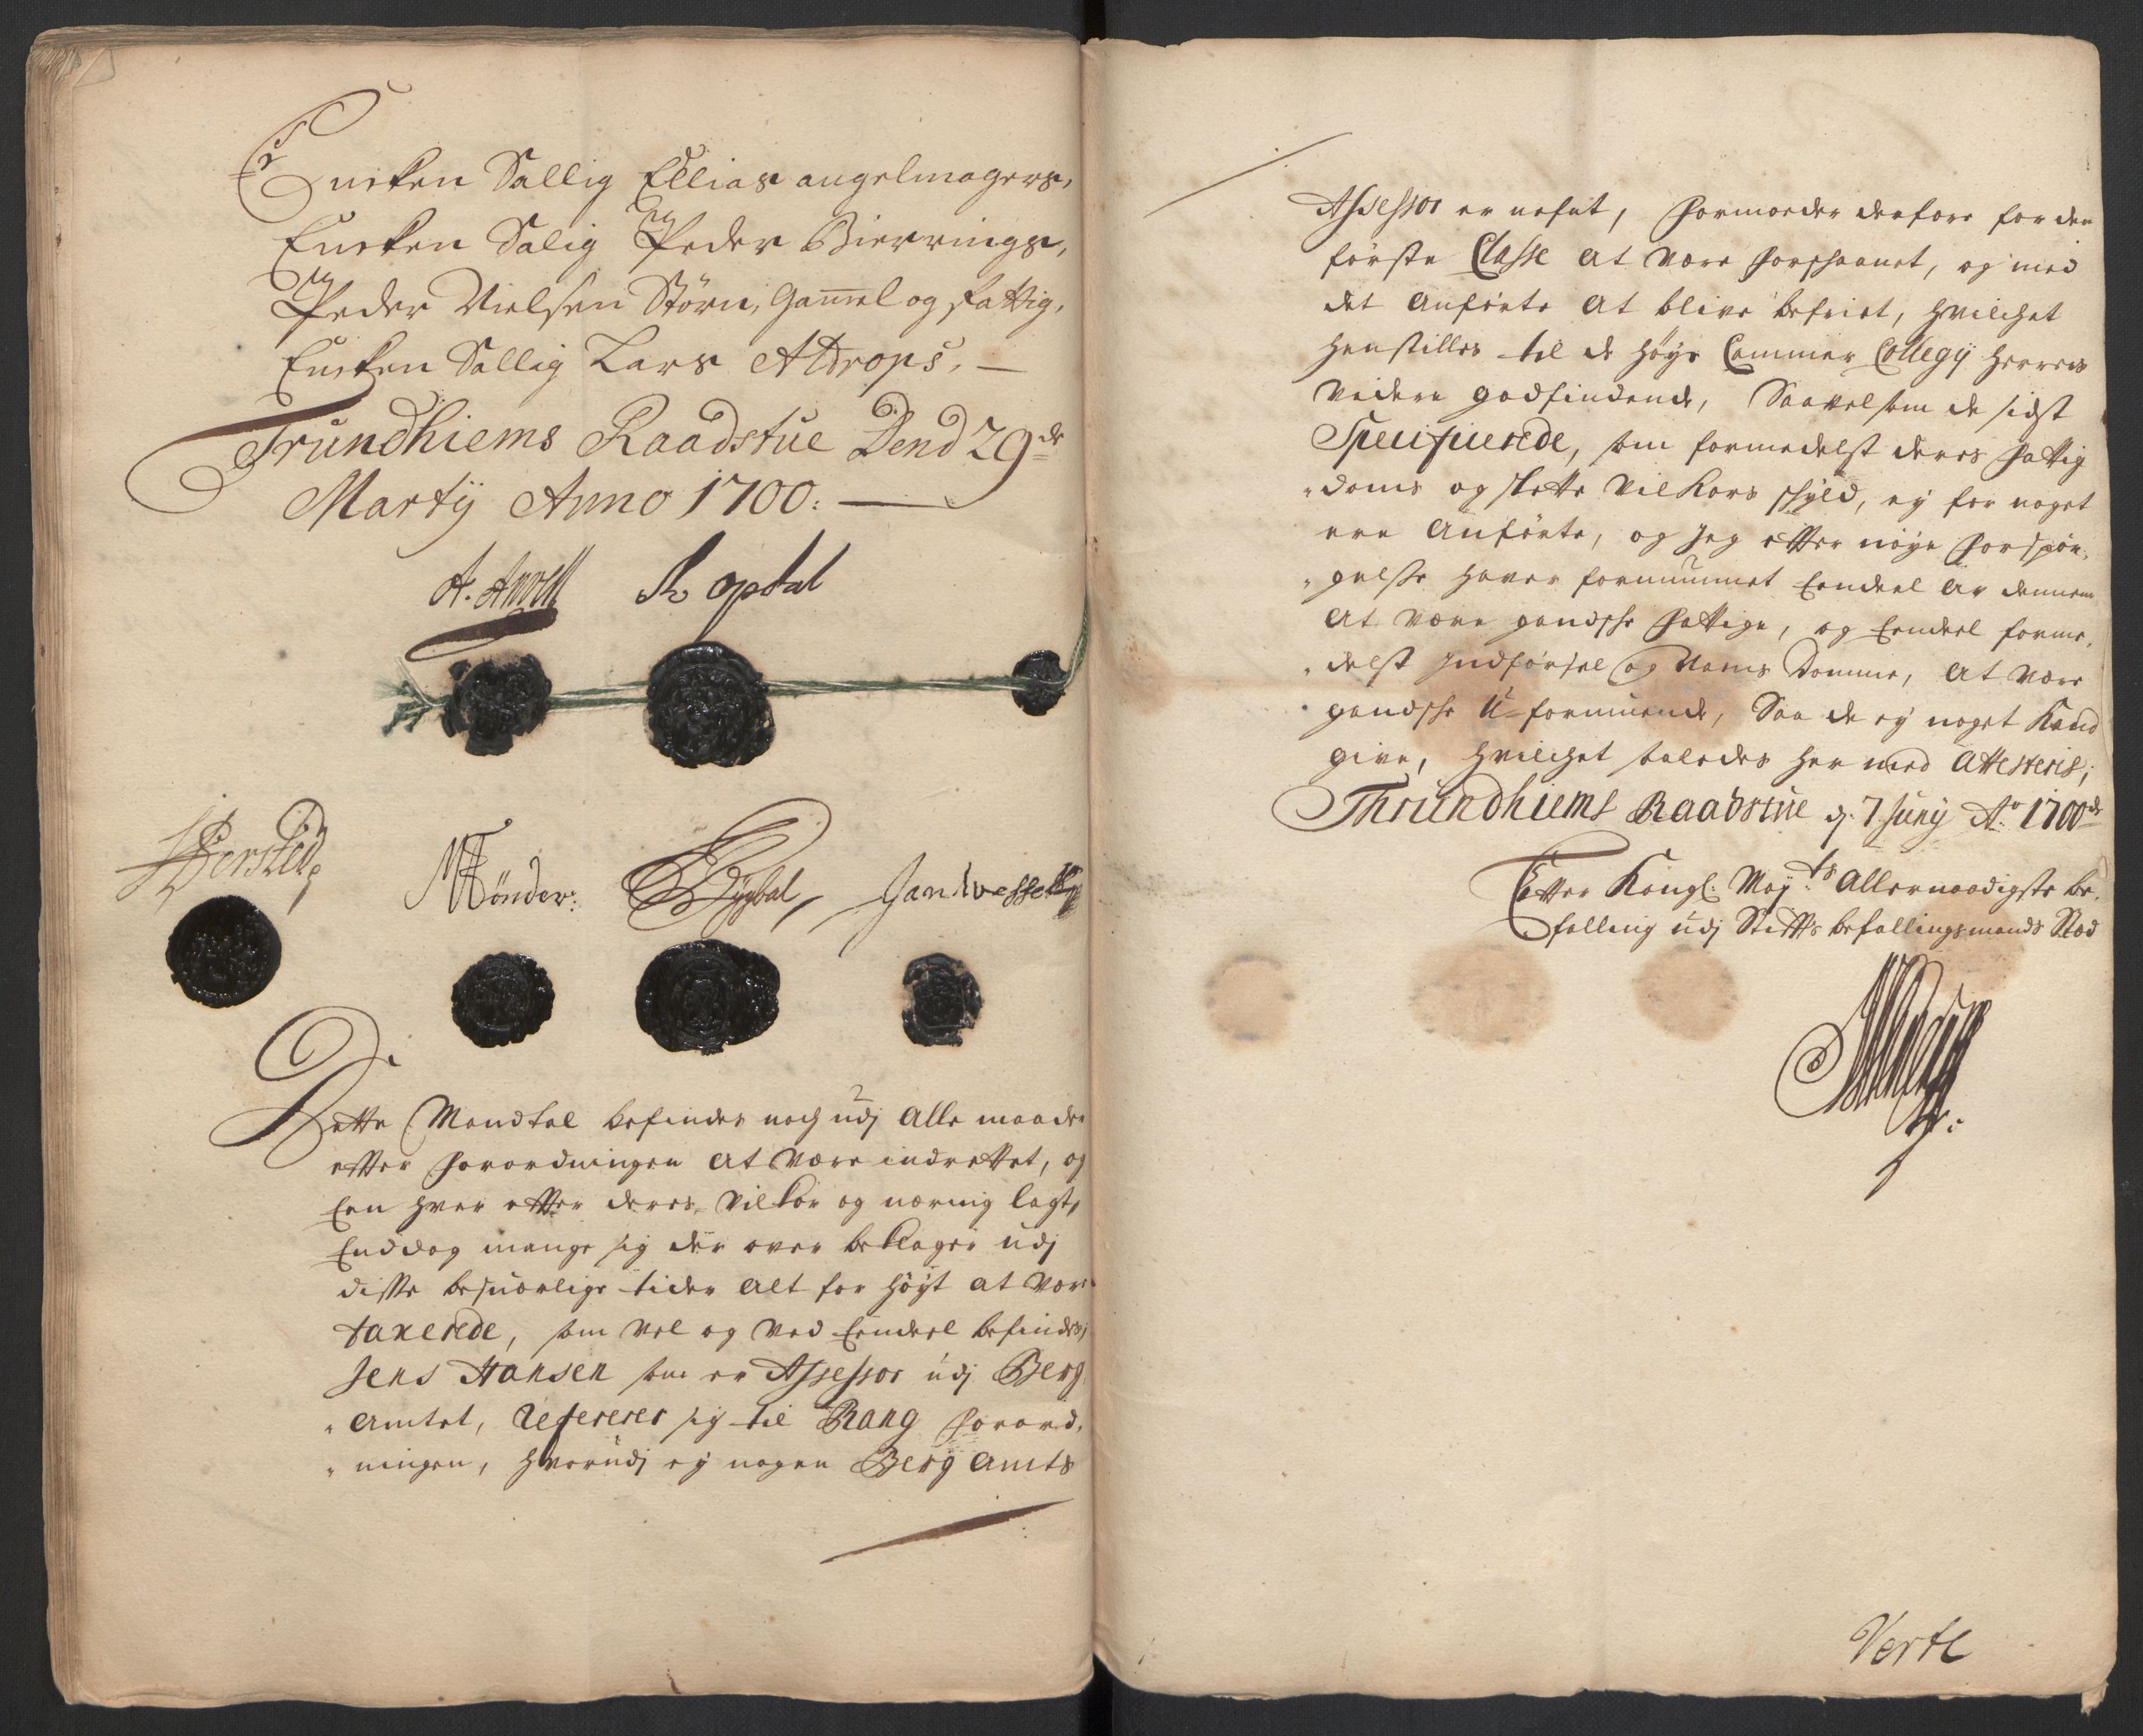 Encken Sallig Ellias angelmagers,
Encken Salig Peder Bierrings,
Peder Nielsen Störn, Gam̅el og fattig,
Encken Sallig Lars Altrops. —
Trundhiems Raadstue Dend 29de
Martÿ Anno 1700. —
A. Angell
Dette Mandtal befindes noch udj Alle maader
efter Forordningen At være indrettet, og
Een hver efter deres Vilkor og næring lagt,
Enddog mange sig der over beklager udj
disse besuærlige tider Alt for höyt at være
taxerede, som vel og ved Eendeel befindes,
Jens Hansen som er Assessor udj Berg
Amtet, Refererer sig til Rang Forord,
ningen, hvorudj ey nogen Berg Amts
Assessor er nefnt, formoder derfore for den
förste Classe At være forschaanet, og med
det Anförte At blive befriet, hvilchet
henstilles til de höye Cammer Collegÿ Herrers
videre godfindende, Saavelsom de sidst
Specificerede, som formedelst deres fattig
doms og slette Vilkors schyld, ey for noget
ere Anförte, og Jeg efter nöye Forspör,
gelse haver fornummet Eendeel Av dennem
At være gandsche Fattige, og Eendeel forme,
delst Indförsel og Doms Domme, At være
gandsche U-formuende, Saa de ey noget Kand
give, hvilchet saaledes her med Attesteris,
Thrundhiems Raadstue d. 7. Junÿ Ao 1700de
Efter Kongl: Mayts Allernaadigste be,
falling udj Stiftsbefallingsmands Sted
Verte